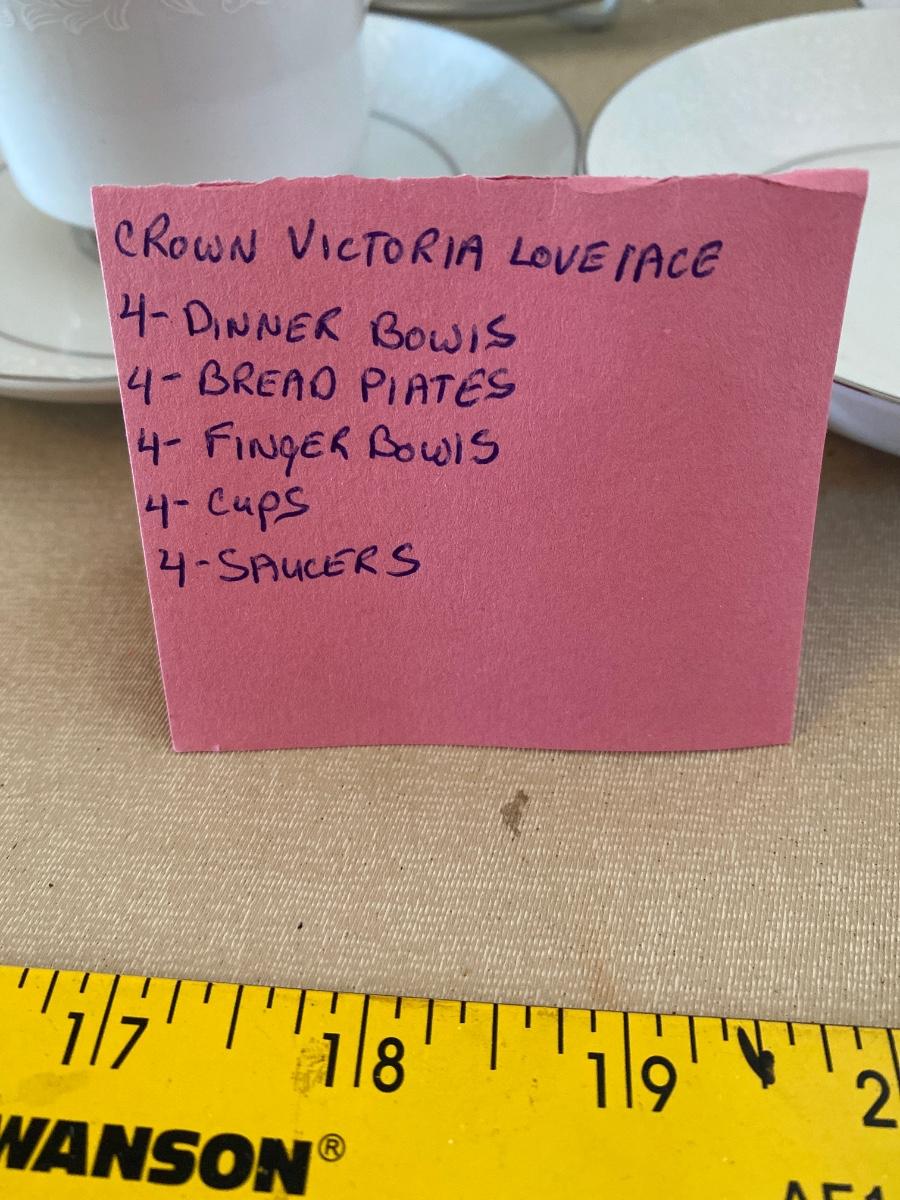 CROWN VICTORIA LOVElACE
4- DINNER BOWlS
4- BREAD PlATES
4- FINGER BOWlS
4- CuPS
4-SAUCERS
17 18 19 2
WANSON®